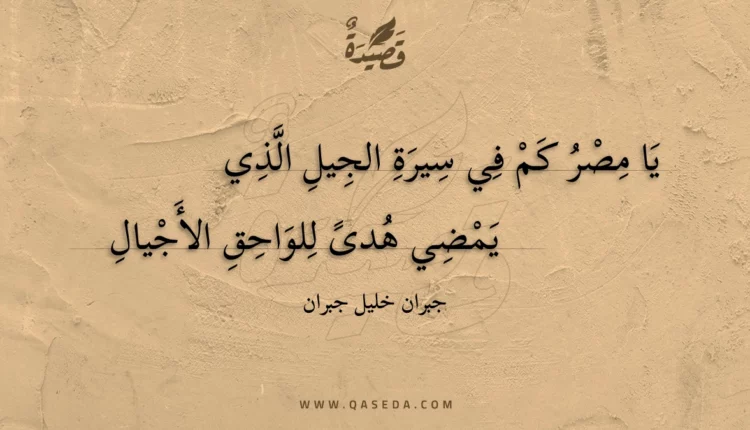 قَصِيدَةٌ
يَا مِصْرُ كَمْ فِي سِيرَةِ الجِيلِ الَّذِي
يَمْضِي هُدىً لِلوَاحِقِ الأَجْيالِ
جبران خليل جبران
WWW.QASEDA.COM